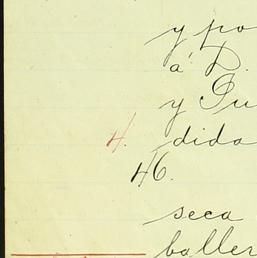 y po
á D.
y Gu
4. dida
46.
seca
baller